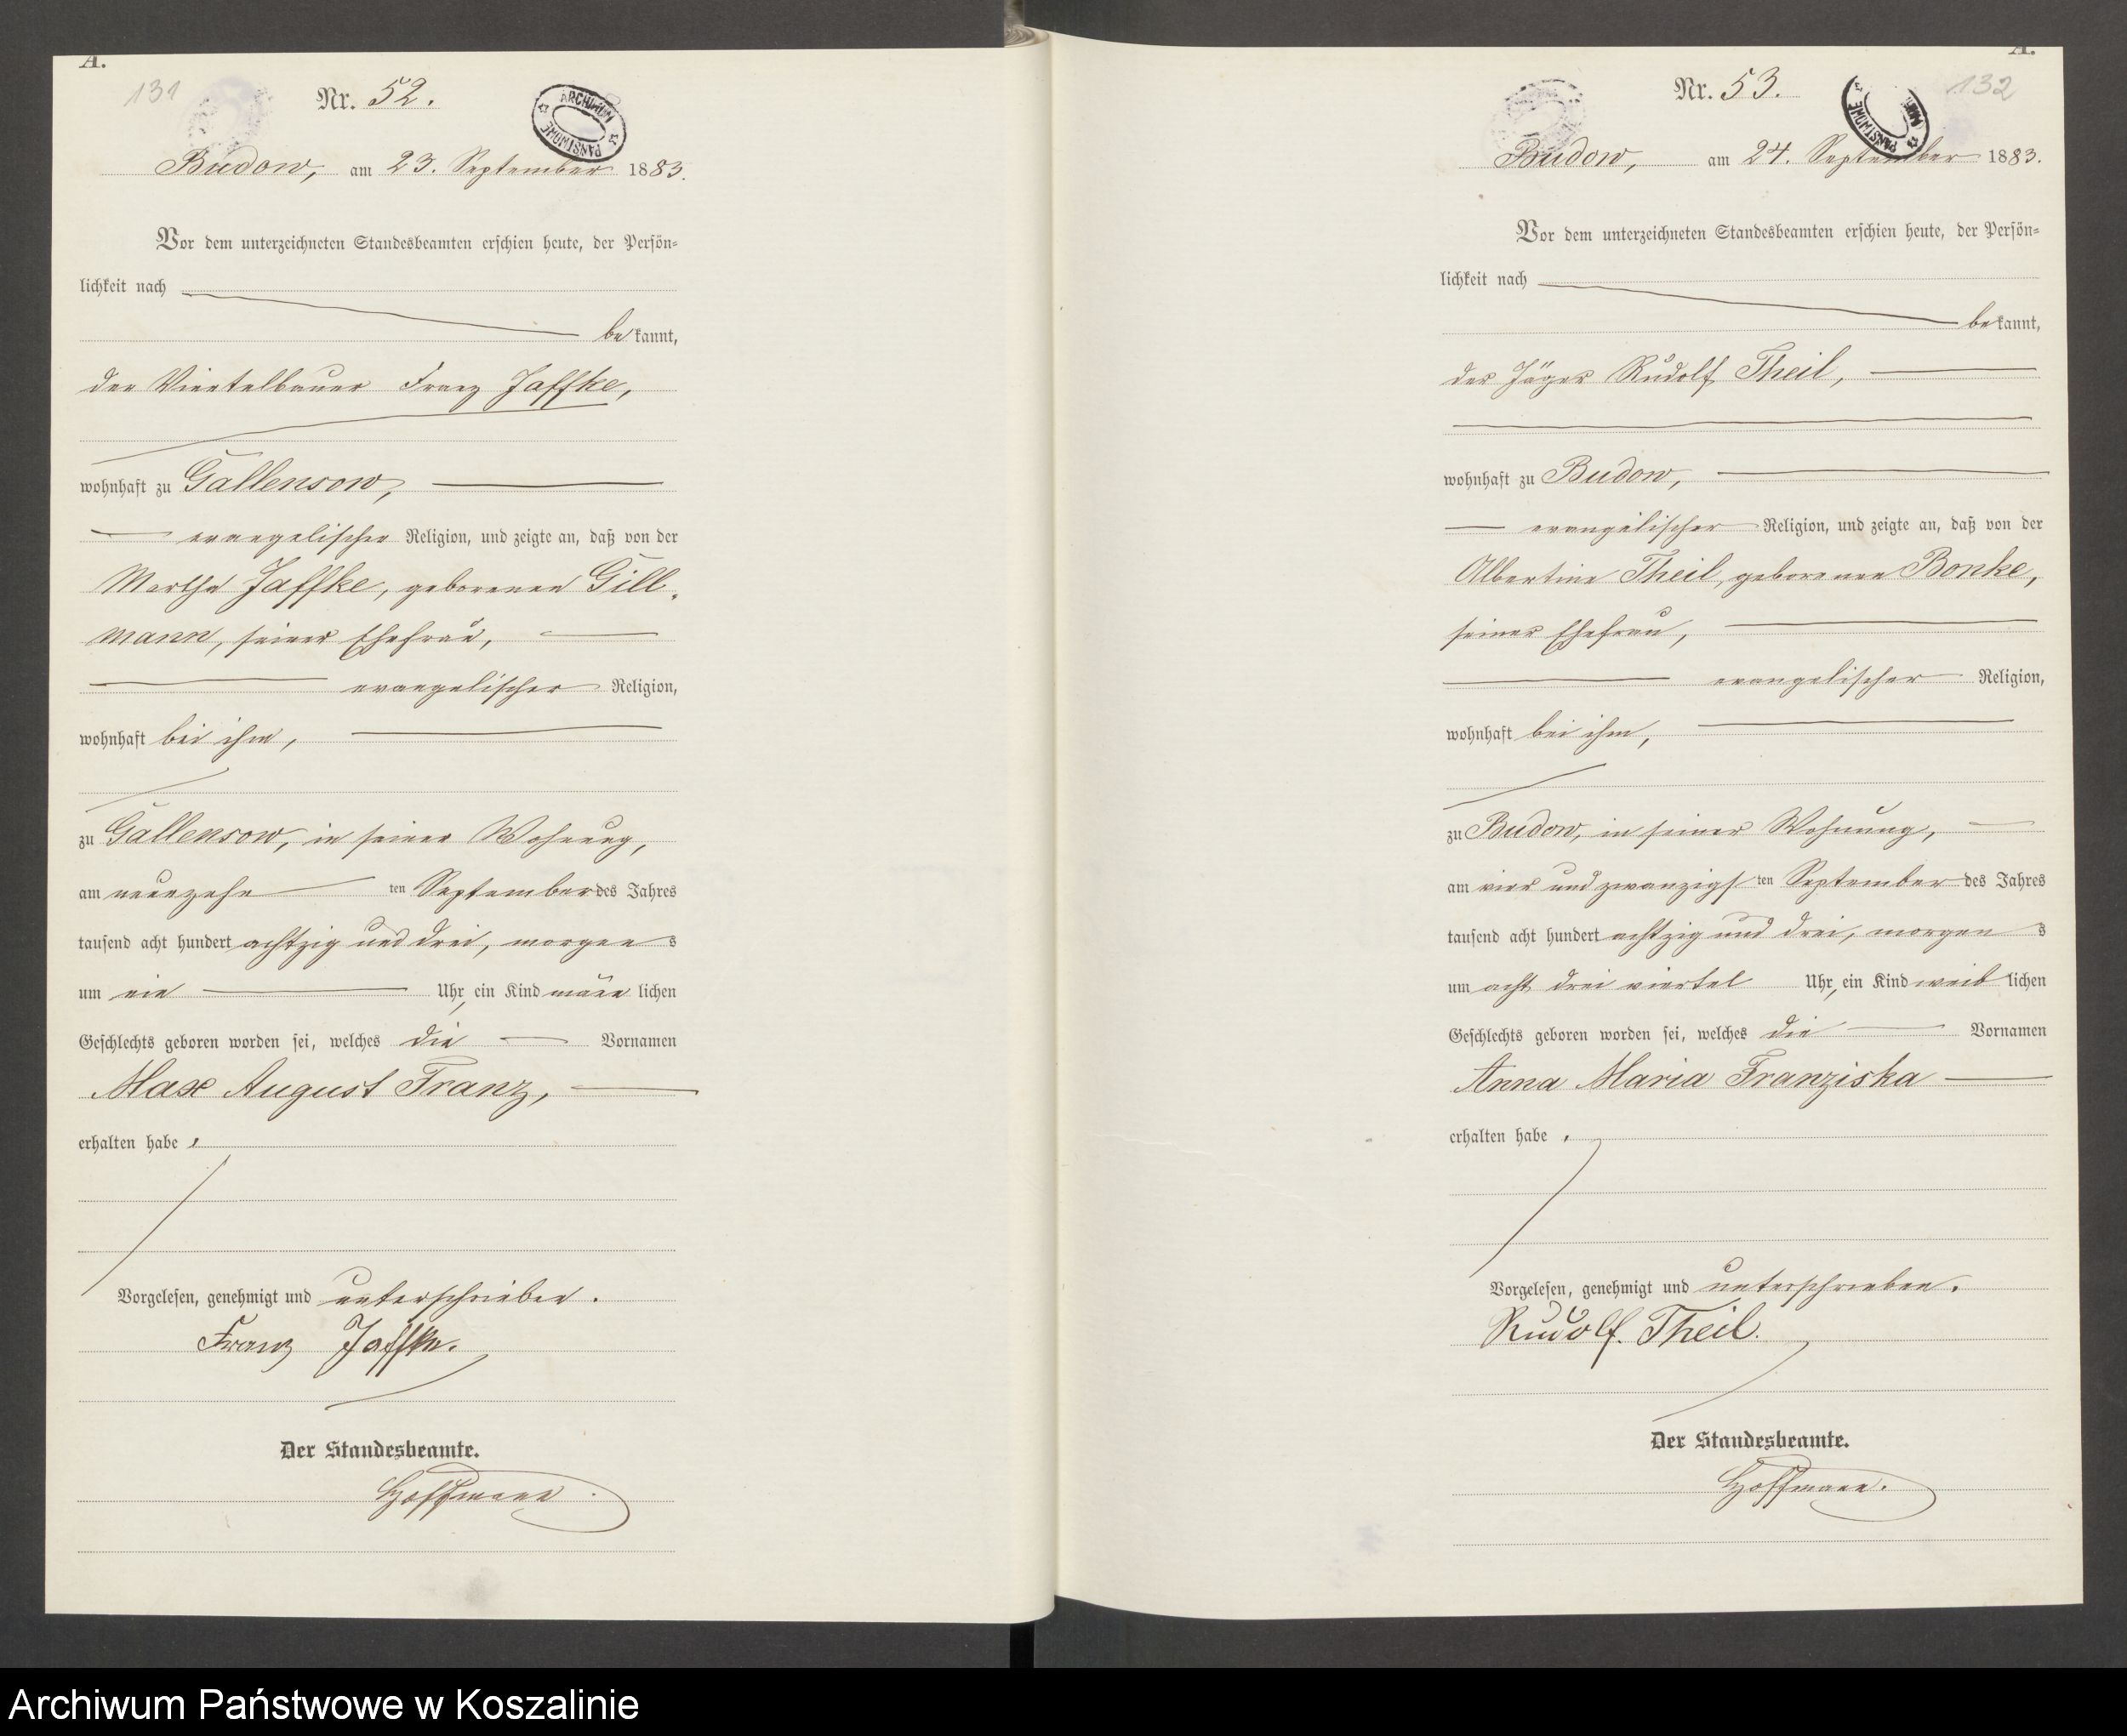 A.
131
Nr. 52.
ARCHIWUM PAŃSTWOWE
Budow, am 23. September 1883.
Vor dem unterzeichneten Standesbeamten erschien heute, der Persön=
lichkeit nach
bekannt,
der Viertelbauer Franz Jaffke,
wohnhaft zu Gallensow,
evangelischer Religion, und zeigte an, daß von der
Martha Jaffke, geborenen Gill-
mann, seiner Ehefrau,
evangelischer Religion,
wohnhaft bei ihm,
zu Gallensow, in seiner Wohnung,
am neunzehn ten September des Jahres
tausend acht hundert achtzig und drei, morgens
um ein Uhr, ein Kind männlichen
Geschlechts geboren worden sei, welches die Vornamen
Max August Franz,
erhalten habe.
Vorgelesen, genehmigt und unterschrieben.
Franz Jaffke.
Der Standesbeamte.
Hoffmann.
A.
132
Nr. 53.
PAŃSTWOWE
Budow, am 24. September 1883.
Vor dem unterzeichneten Standesbeamten erschien heute, der Persön=
lichkeit nach
bekannt,
der Jäger Rudolf Theil,
wohnhaft zu Budow,
evangelischer Religion, und zeigte an, daß von der
Albertine Theil, geborenen Bonke,
seiner Ehefrau,
evangelischer Religion,
wohnhaft bei ihm,
zu Budow, in seiner Wohnung,
am vier und zwanzigsten September des Jahres
tausend acht hundert achtzig und drei, morgens
um acht drei viertel Uhr, ein Kind weiblichen
Geschlechts geboren worden sei, welches die Vornamen
Anna Maria Franziska
erhalten habe.
Vorgelesen, genehmigt und unterschrieben.
Rudolf Theil.
Der Standesbeamte.
Hoffmann.
Archiwum Państwowe w Koszalinie